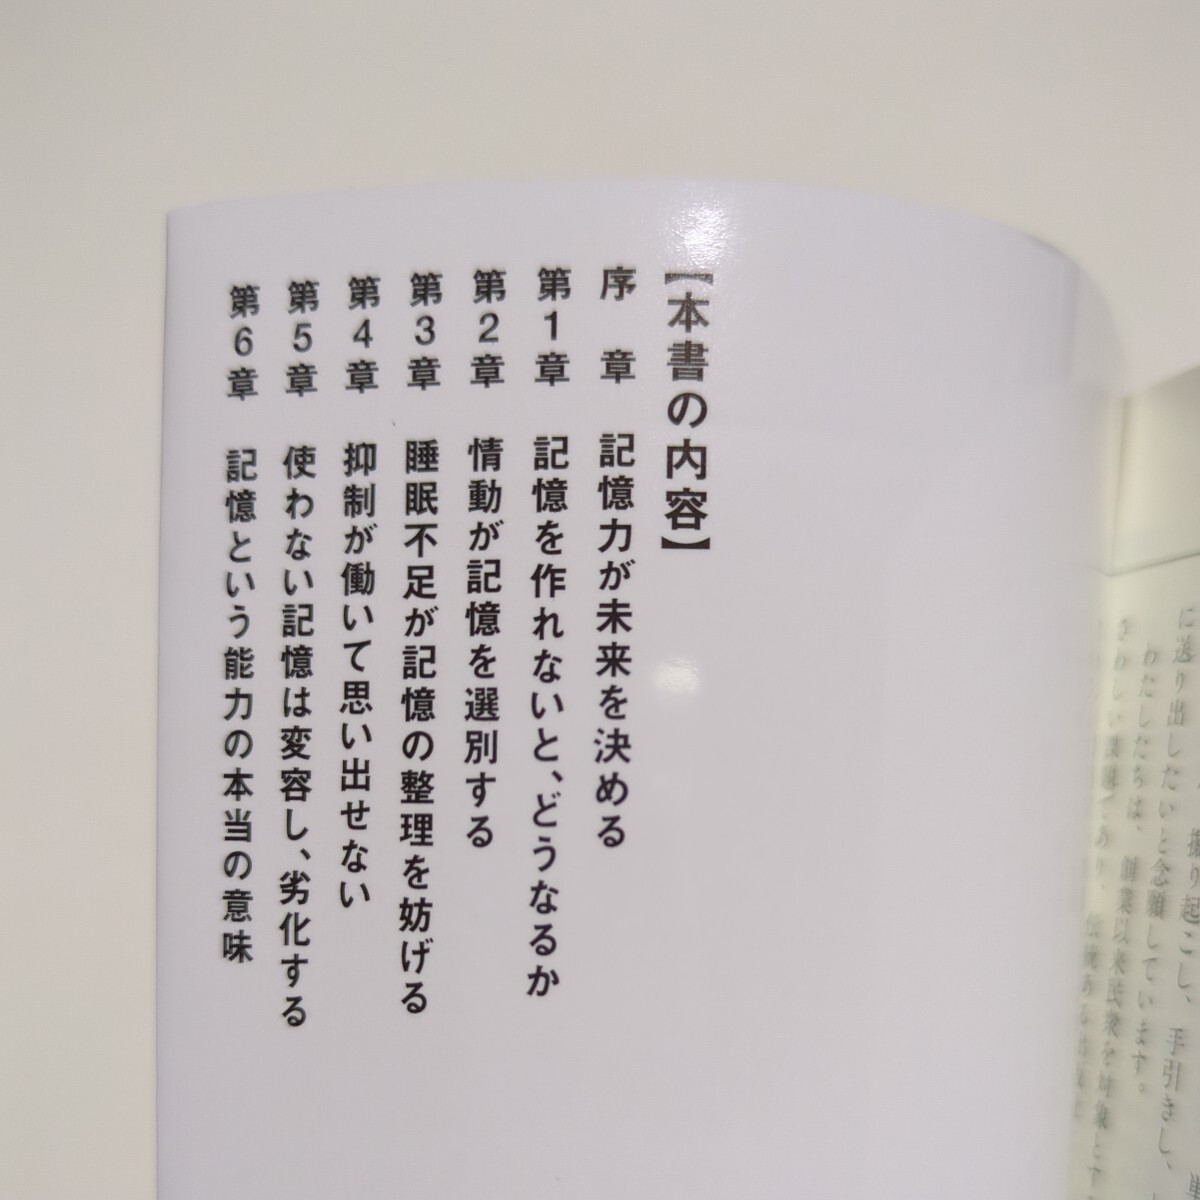 【本書の内容】
序　章　記憶力が未来を決める
第1章　記憶を作れないと、どうなるか
第2章　情動が記憶を選別する
第3章　睡眠不足が記憶の整理を妨げる
第4章　抑制が働いて思い出せない
第5章　使わない記憶は変容し、劣化する
第6章　記憶という能力の本当の意味
掘り起こし、手引きし、
に送り出したいと念願しています。
わたしたちは、創業以来民衆を対象とす